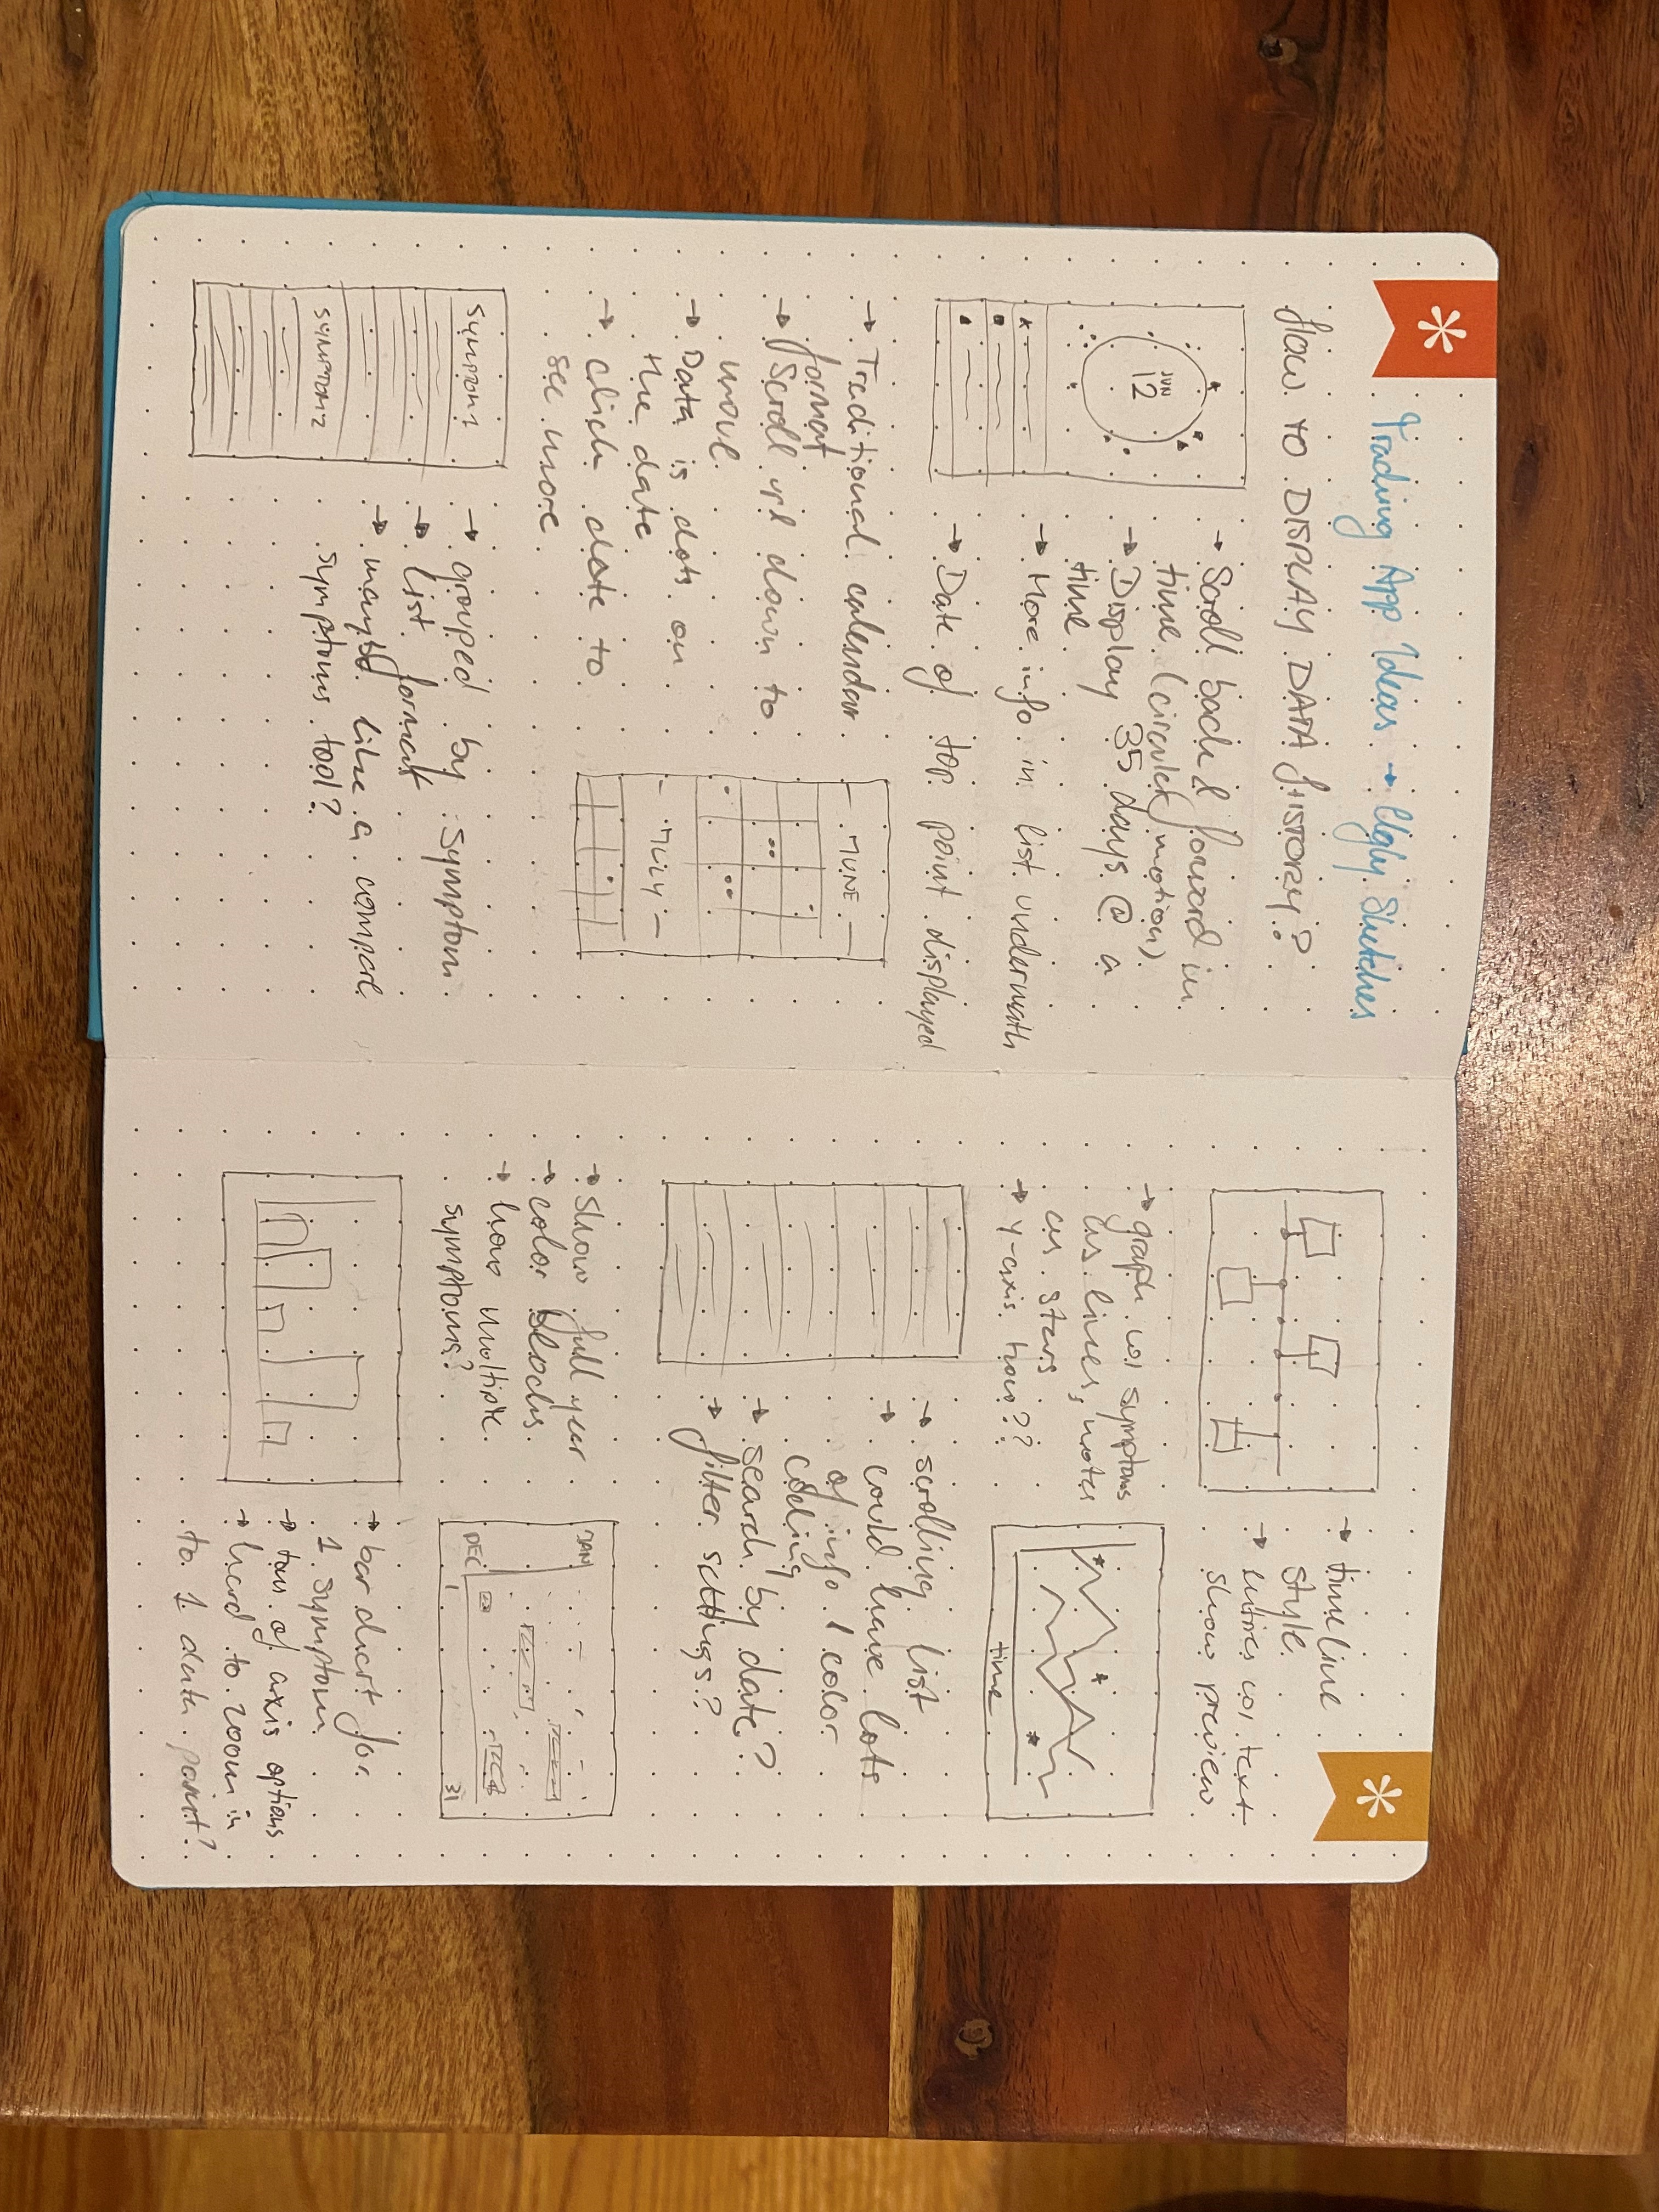 Tracking App Ideas → Ugly Sketches
HOW TO DISPLAY DATA HISTORY?
JUN
12
→ Scroll back & forward in
time (circular motion)
→ Display 35 days @ a
time
→ More info in list underneath
→ Date of top point displayed
→ Traditional calendar
format
→ Scroll up & down to
move
→ Data is dots on
the date
→ click date to
see more
— JUNE —
— JULY —
SYMPTOM 1
SYMPTOM 2
→ grouped by symptom
→ list format
→ maybe like a compare
symptoms tool?
→ timeline
style
→ entries w/ text
show preview
→ graph w/ symptoms
as lines, notes
as stars
→ y-axis how??
time
→ scrolling list
→ could have lots
of info / color
coding
→ search by date?
→ filter settings?
→ Show full year
→ color blocks
→ how multiple
symptoms?
JAN
DEC
1
31
→ bar chart for
1 symptom
→ tons of axis options
→ hard to zoom in
to 1 data point?